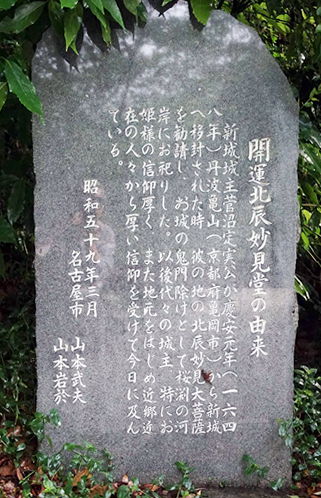 開運北辰妙見堂の由来
新城城主菅沼定実公が慶安元年（一六四
八年）丹波亀山（京都府亀岡市）から新城
へ移封された時、彼の地の北辰妙見大菩薩
を勧請し、お城の鬼門除けとして桜渕の河
岸にお祀りした。以後代々の城主、特にお
姫様の信仰厚く、また地元をはじめ近郷近
在の人々から厚い信仰を受けて今日に及ん
でいる。
昭和五十九年三月
名古屋市 山本武夫
山本岩於